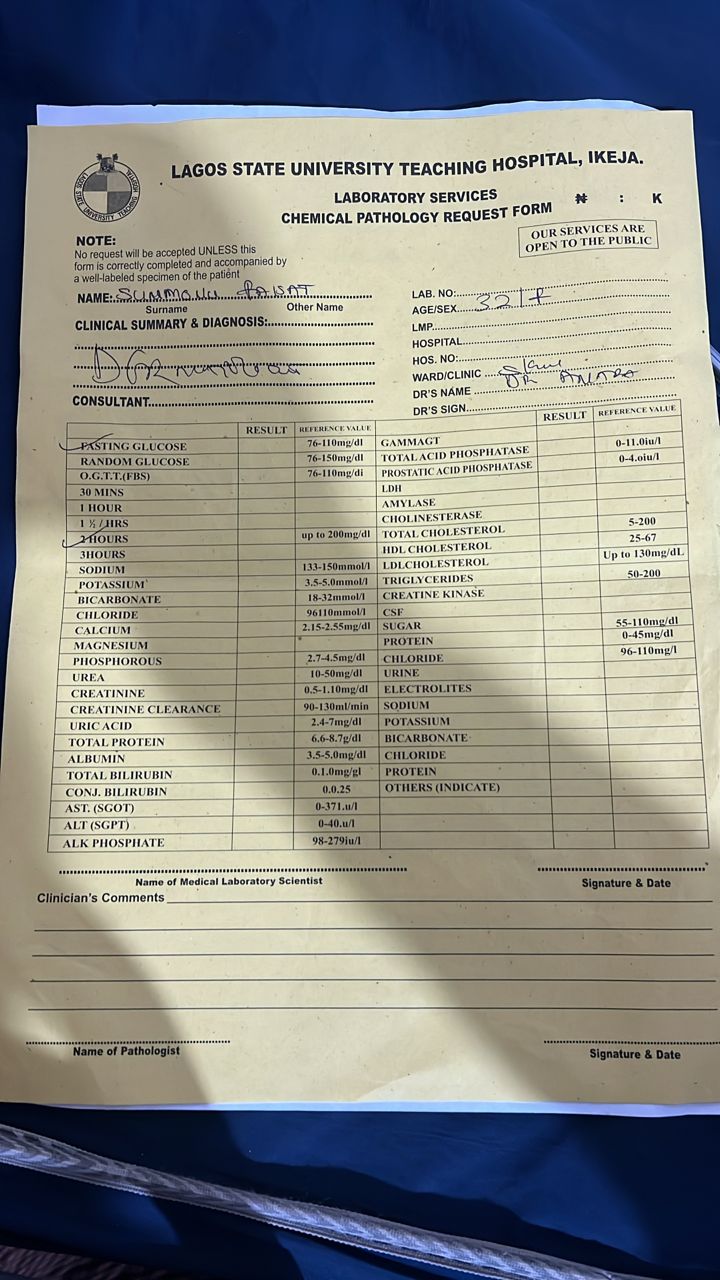 LAGOS STATE UNIVERSITY TEACHING HOSPITAL, IKEJA.
LABORATORY SERVICES
CHEMICAL PATHOLOGY REQUEST FORM ₦ : K
OUR SERVICES ARE
OPEN TO THE PUBLIC
NOTE:
No request will be accepted UNLESS this
form is correctly completed and accompanied by
a well-labeled specimen of the patient
NAME: SUMMONU
Surname Other Name
CLINICAL SUMMARY & DIAGNOSIS:
CONSULTANT
LAB. NO:
AGE/SEX 32/F
LMP
HOSPITAL
HOS. NO:
WARD/CLINIC
DR'S NAME DR
DR'S SIGN
RESULT REFERENCE VALUE
FASTING GLUCOSE 76-110mg/dl
RANDOM GLUCOSE 76-150mg/dl
O.G.T.T.(FBS) 76-110mg/di
30 MINS
1 HOUR
1 ½ / HRS
2 HOURS up to 200mg/dl
3HOURS
SODIUM 133-150mmol/l
POTASSIUM 3.5-5.0mmol/l
BICARBONATE 18-32mmol/l
CHLORIDE 96110mmol/l
CALCIUM 2.15-2.55mg/dl
MAGNESIUM
PHOSPHOROUS 2.7-4.5mg/dl
UREA 10-50mg/dl
CREATININE 0.5-1.10mg/dl
CREATININE CLEARANCE 90-130ml/min
URIC ACID 2.4-7mg/dl
TOTAL PROTEIN 6.6-8.7g/dl
ALBUMIN 3.5-5.0mg/dl
TOTAL BILIRUBIN 0.1.0mg/gl
CONJ. BILIRUBIN 0.0.25
AST. (SGOT) 0-371.u/l
ALT (SGPT) 0-40.u/l
ALK PHOSPHATE 98-279iu/l
RESULT REFERENCE VALUE
GAMMAGT 0-11.0iu/l
TOTAL ACID PHOSPHATASE 0-4.oiu/l
PROSTATIC ACID PHOSPHATASE
LDH
AMYLASE
CHOLINESTERASE
TOTAL CHOLESTEROL 5-200
HDL CHOLESTEROL 25-67
LDLCHOLESTEROL Up to 130mg/dL
TRIGLYCERIDES 50-200
CREATINE KINASE
CSF
SUGAR 55-110mg/dl
PROTEIN 0-45mg/dl
CHLORIDE 96-110mg/l
URINE
ELECTROLITES
SODIUM
POTASSIUM
BICARBONATE
CHLORIDE
PROTEIN
OTHERS (INDICATE)
Name of Medical Laboratory Scientist Signature & Date
Clinician's Comments
Name of Pathologist Signature & Date